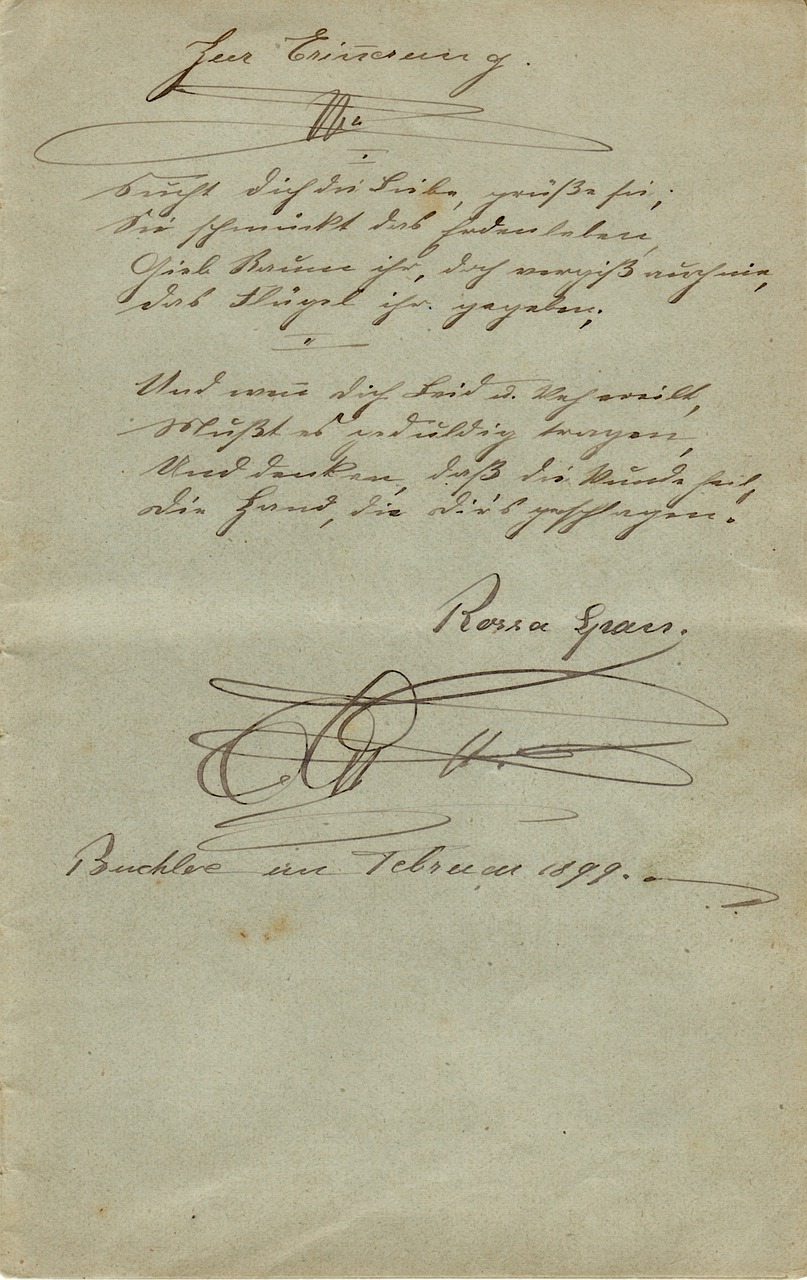 Zur Erin̅erung.
Sucht dich die Liebe, grüße sie;
Sie schmückt das Erdenleben,
Gieb Raum ihr, doch vergiß auch nie,
das Flügel ihr gegeben;
Und wen̅ dich Leid u. Weh ereilt,
Mußt es geduldig tragen,
Und denken, daß die Wunde heilt,
Die Hand, die dir's geschlagen.
Rossa
Buchloe im Februar 1899.